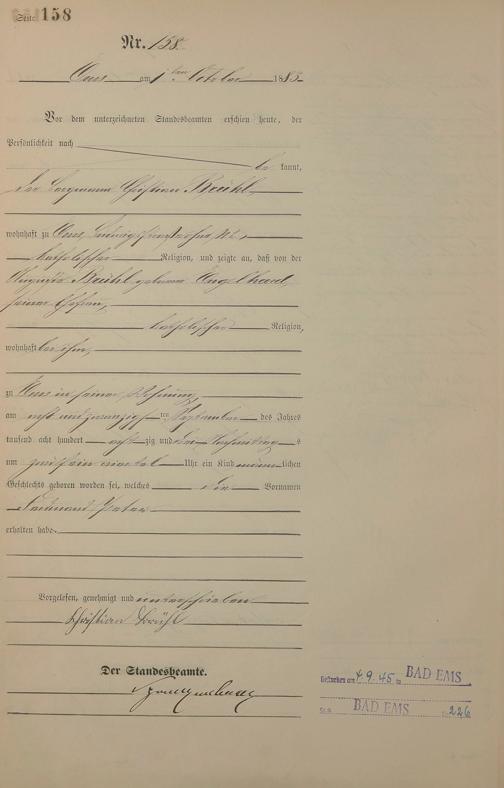 Seite 158
Nr. 158.
Ems am 1ten October 1883.
Vor dem unterzeichneten Standesbeamten erschien heute, der
Persönlichkeit nach
be kannt,
der Bergmann Christian Brühl
wohnhaft zu Ems,
katholischer Religion, und zeigte an, daß von der
Auguste Brühl geborne Engelhard,
seiner Ehefrau,
katholischer Religion,
wohnhaft bei ihm,
zu Ems in seiner Wohnung,
am acht und zwanzigsten September des Jahres
tausend acht hundert acht zig und drei Nachmittags
um Uhr ein Kind männlichen
Geschlechts geboren worden sei, welches die Vornamen
Ferdinand Peter
erhalten habe.
Vorgelesen, genehmigt und unterschrieben
Christian Brühl
Der Standesbeamte.
Gestorben am 4.9.45 in BAD EMS
St.A. BAD EMS Nr. 226